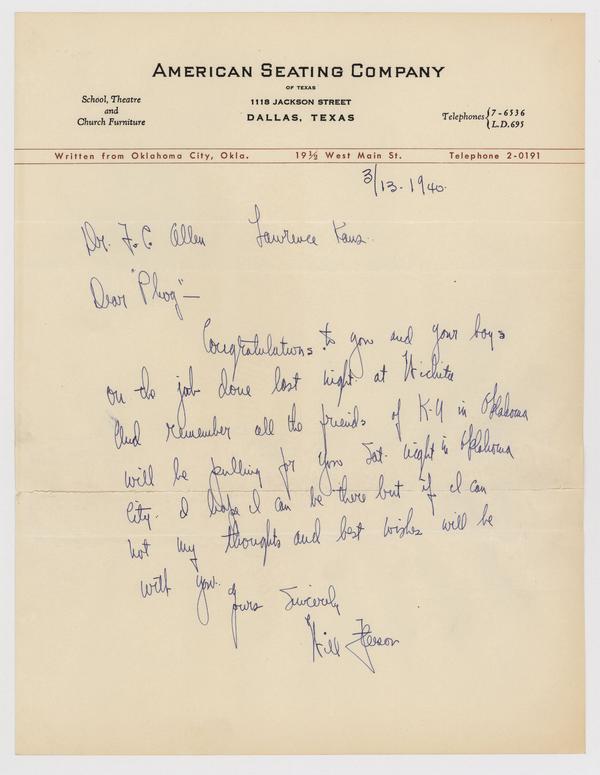 AMERICAN SEATING COMPANY
OF TEXAS
1118 JACKSON STREET
DALLAS, TEXAS
School, Theatre
and
Church Furniture
Telephones {7-6536
L.D.695
Written from Oklahoma City, Okla. 19½ West Main St. Telephone 2-0191
3/13-1940.
Dr. F. C. Allen Lawrence Kans.
Dear "Phog"—
Congratulations to you and your boys
on the job done last night at Wichita
And remember all the friends of K-U in Oklahoma
will be pulling for you Sat. night in Oklahoma
City. I hope I can be there but if I can
not my thoughts and best wishes will be
with you.
Yours Sincerely
Will